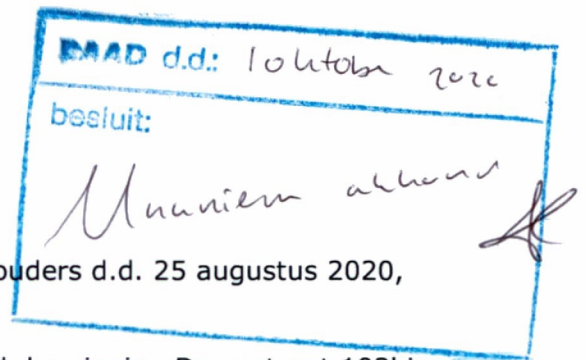 RAAD d.d.: 1 oktober 2020
besluit:
Unaniem akkoord
ouders d.d. 25 augustus 2020,